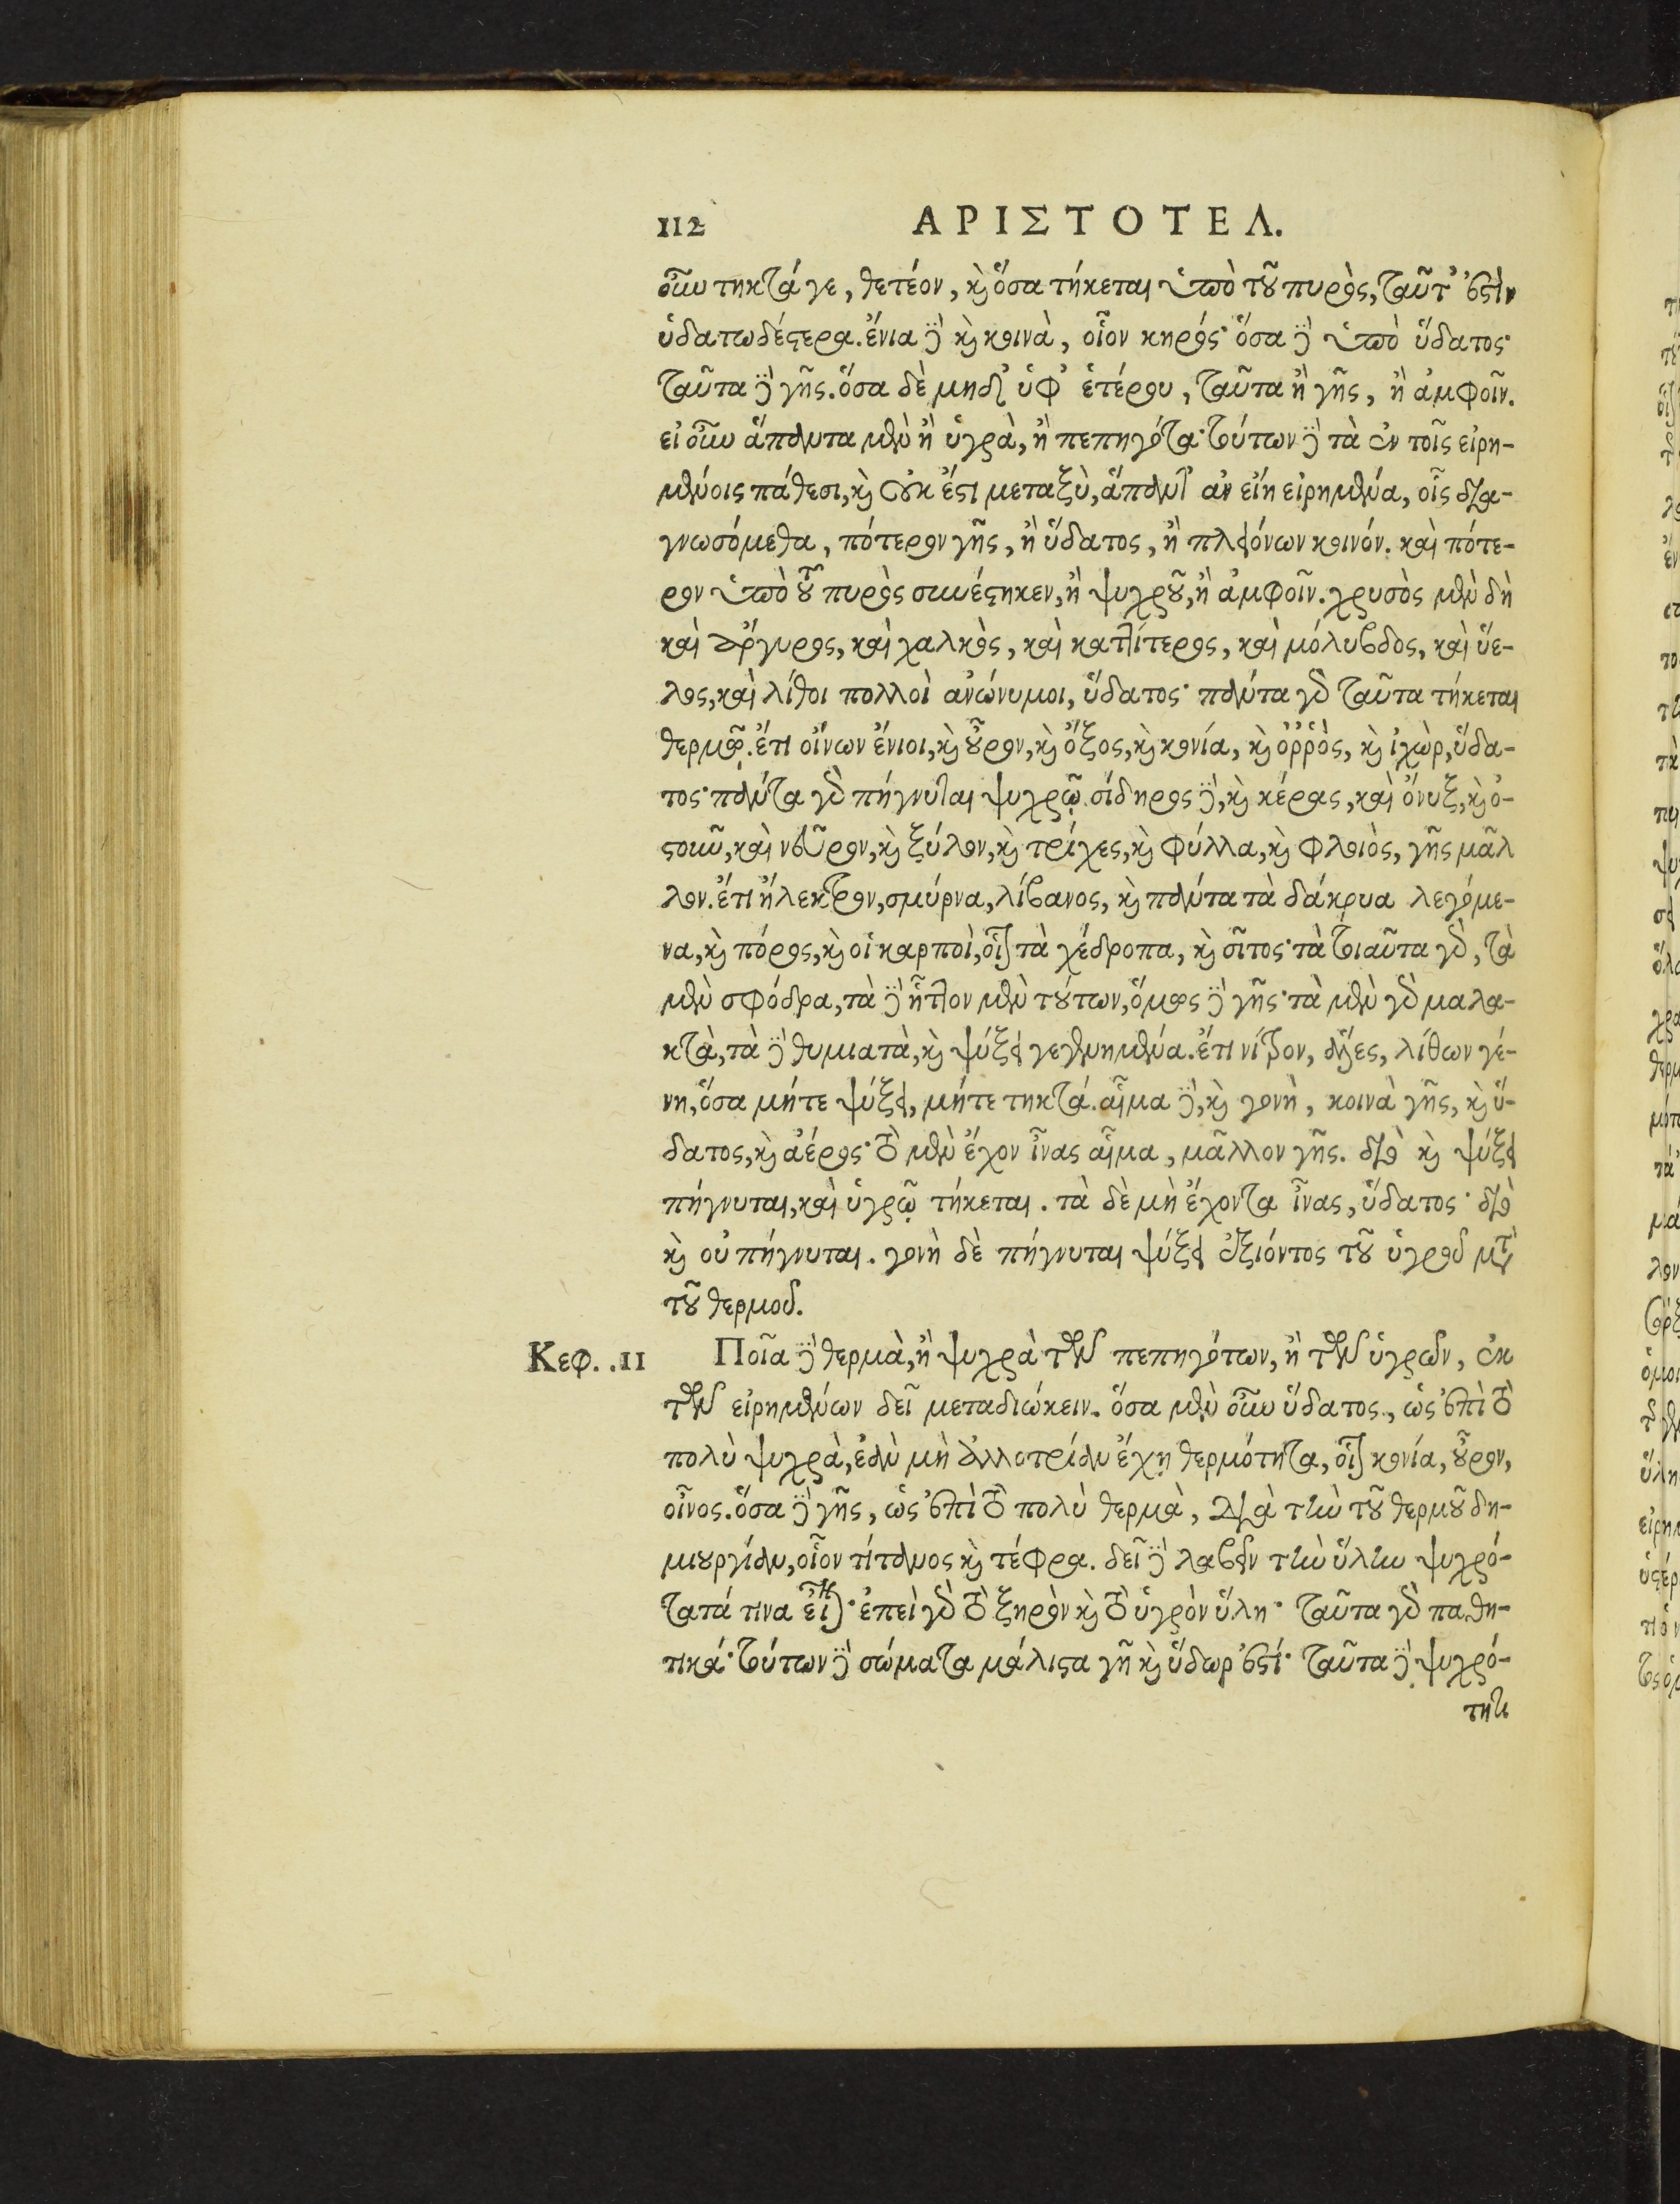 112 ΑΡΙΣΤΟΤΕΛ.
οὖν τηκτά γε, θετέον, καὶ ὅσα τήκεται ὑπὸ τοῦ πυρὸς, ταῦτ' ἐστὶν
ὑδατωδέστερα. ἔνια δὲ καὶ κοινὰ, οἷον κηρός· ὅσα δὲ ὑπὸ ὕδατος·
ταῦτα δὲ γῆς. ὅσα δὲ μηδ' ὑφ' ἑτέρου, ταῦτα ἢ γῆς, ἢ ἀμφοῖν.
εἰ οὖν ἅπαντα μὲν ἢ ὑγρὰ, ἢ πεπηγότα· τούτων δὲ τὰ ἐν τοῖς εἰρη-
μένοις πάθεσι, καὶ οὐκ ἔστι μεταξὺ, ἅπαντ' ἂν εἴη εἰρημένα, οἷς δια-
γνωσόμεθα, πότερον γῆς, ἢ ὕδατος, ἢ πλειόνων κοινόν. καὶ πότε-
ρον ὑπὸ τοῦ πυρὸς συνέστηκεν, ἢ ψυχροῦ, ἢ ἀμφοῖν. χρυσὸς μὲν δὴ
καὶ ἄργυρος, καὶ χαλκὸς, καὶ καττίτερος, καὶ μόλυβδος, καὶ ὕε-
λος, καὶ λίθοι πολλοὶ ἀνώνυμοι, ὕδατος· πάντα γὰρ ταῦτα τήκεται
θερμῷ. ἔτι οἴνων ἔνιοι, καὶ οὖρον, καὶ ὄξος, καὶ κονία, καὶ ὀῤῥὸς, καὶ ἰχὼρ, ὕδα-
τος· πάντα γὰρ πήγνυται ψυχρῷ. σίδηρος δὲ, καὶ κέρας, καὶ ὄνυξ, καὶ ὀ-
στοῦν, καὶ νεῦρον, καὶ ξύλον, καὶ τρίχες, καὶ φύλλα, καὶ φλοιὸς, γῆς μᾶλ
λον. ἔτι ἤλεκτρον, σμύρνα, λίβανος, καὶ πάντα τὰ δάκρυα λεγόμε-
να, καὶ πόρος, καὶ οἱ καρποὶ, οἷον τὰ χέδροπα, καὶ σῖτος· τὰ τοιαῦτα γὰρ, τὰ
μὲν σφόδρα, τὰ δὲ ἧττον μὲν τούτων, ὅμως δὲ γῆς· τὰ μὲν γὰρ μαλα-
κτὰ, τὰ δὲ θυμιατὰ, καὶ ψύξει γεγενημένα. ἔτι νίτρον, ἅλες, λίθων γέ-
νη, ὅσα μήτε ψύξει, μήτε τηκτά. αἷμα δὲ, καὶ γονὴ, κοινὰ γῆς, καὶ ὕ-
δατος, καὶ ἀέρος· τὸ μὲν ἔχον ἶνας αἷμα, μᾶλλον γῆς. διὸ καὶ ψύξει
πήγνυται, καὶ ὑγρῷ τήκεται. τὰ δὲ μὴ ἔχοντα ἶνας, ὕδατος· διὸ
καὶ οὐ πήγνυται. γονὴ δὲ πήγνυται ψύξει ἐξιόντος τοῦ ὑγροῦ μετὰ
τοῦ θερμοῦ.
Κεφ. .11 Ποῖα δὲ θερμὰ, ἢ ψυχρὰ τῶν πεπηγότων, ἢ τῶν ὑγρῶν, ἐκ
τῶν εἰρημένων δεῖ μεταδιώκειν. ὅσα μὲν οὖν ὕδατος, ὡς ἐπὶ τὸ
πολὺ ψυχρὰ, ἐὰν μὴ ἀλλοτρίαν ἔχῃ θερμότητα, οἷον κονία, οὖρον,
οἶνος. ὅσα δὲ γῆς, ὡς ἐπὶ τὸ πολὺ θερμὰ, διὰ τὴν τοῦ θερμοῦ δη-
μιουργίαν, οἷον τίτανος καὶ τέφρα. δεῖ δὲ λαβεῖν τὴν ὕλην ψυχρό-
τατά τινα εἶναι· ἐπεὶ γὰρ τὸ ξηρὸν καὶ τὸ ὑγρὸν ὕλη· ταῦτα γὰρ παθη-
τικά· τούτων δὲ σώματα μάλιστα γῆ καὶ ὕδωρ ἐστί· ταῦτα δὲ ψυχρό-
τητι